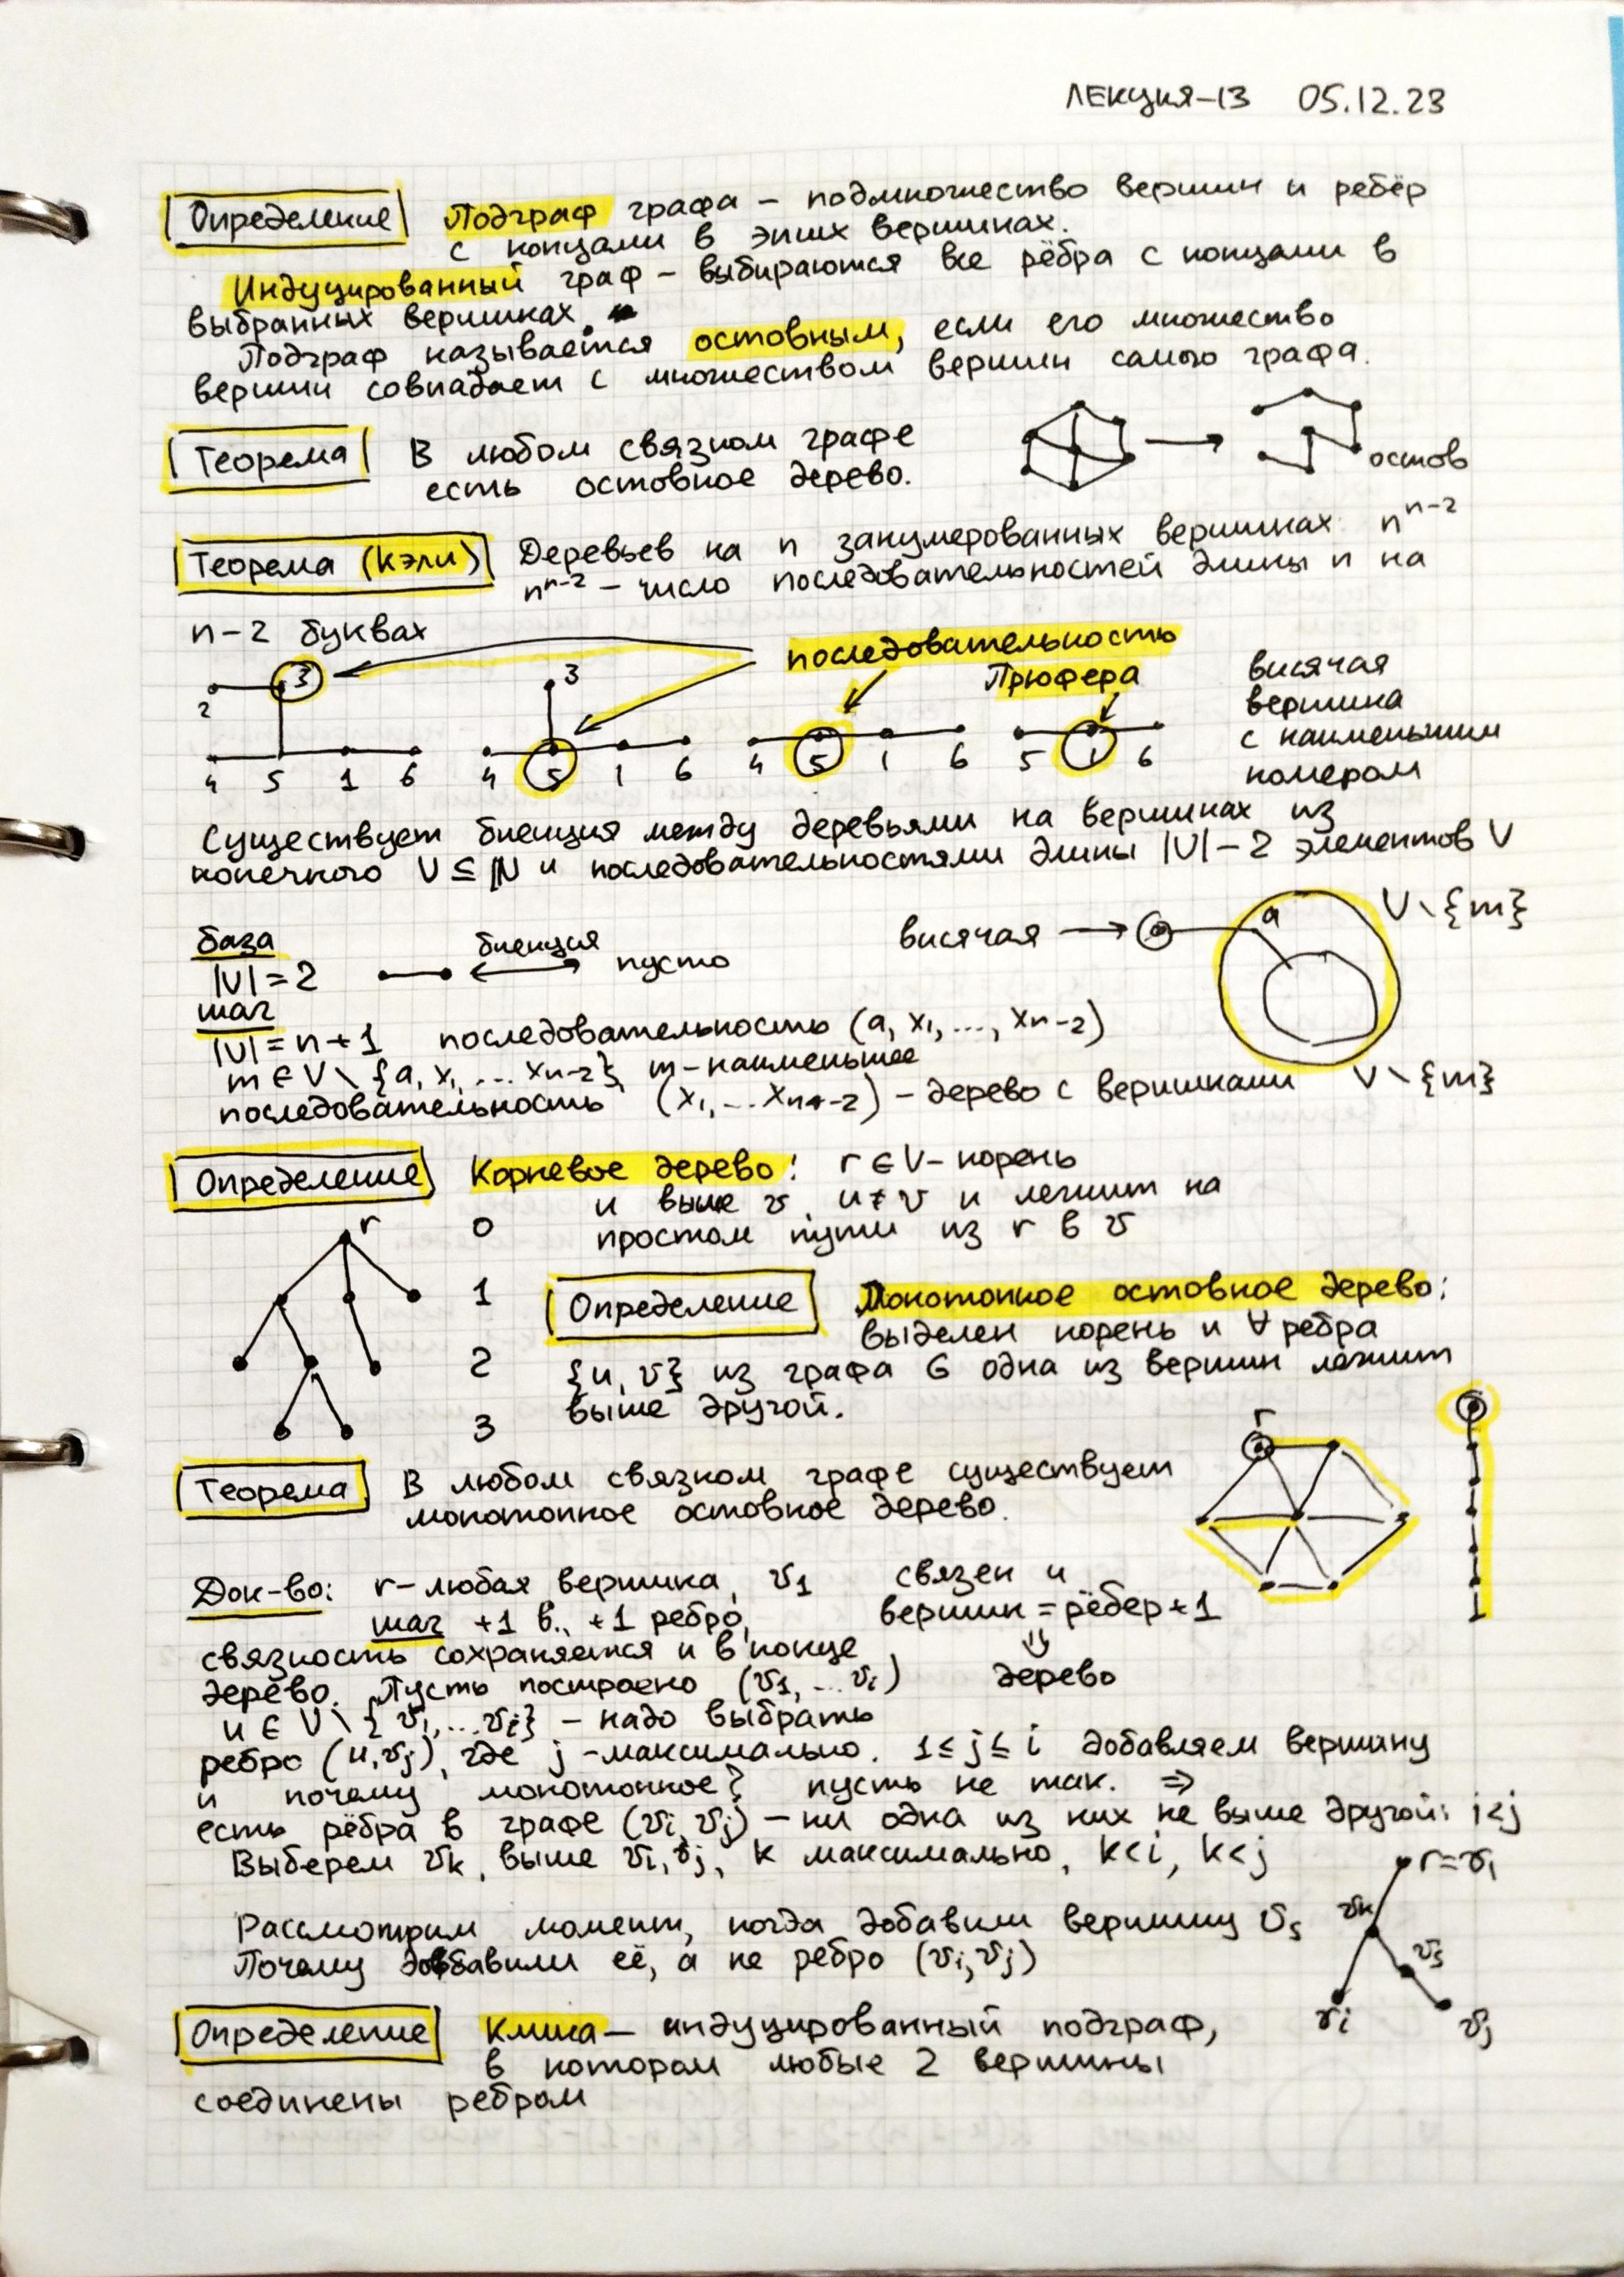 ЛЕКЦИЯ-13 05.12.23
Определение Подграф графа - подмножество вершин и рёбер
с концами в этих вершинах.
Индуцированный граф - выбираются все рёбра с концами в
выбранных вершинах.
Подграф называется остовным, если его множество
вершин совпадает с множеством вершин самого графа.
Теорема В любом связном графе
есть остовное дерево.
остов
Теорема (Кэли) Деревьев на n занумерованных вершинах n^{n-2}
n^{n-2} - число последовательностей длины n на
n-2 буквах
последовательность
Прюфера
3
2
4 5 1 6
3
4 5 1 6
4 5 1 6
5 1 6
висячая
вершина
с наименьшим
номером
Существует биекция между деревьями на вершинах из
конечного V ⊆ ℕ и последовательностями длины |V|-2 элементов V
база
|V|=2 биекция пусто
висячая → a V\{m}
шаг
|V|=n+1 последовательность (a, x₁, ..., xₙ₋₂)
m ∈ V\{a, x₁, ... xₙ₋₂}, m-наименьшее
последовательность (x₁, ... xₙ₋₂) - дерево с вершинами V\{m}
Определение Корневое дерево: r ∈ V - корень
u выше v, u ≠ v и лежит на
простом пути из r в v
r 0
1
2
3
Определение Монотонное остовное дерево:
выделен корень и ∀ ребра
{u, v} из графа G одна из вершин лежит
выше другой.
Теорема В любом связном графе существует
монотонное остовное дерево.
r
Док-во: r-любая вершина, v₁ связен и
шаг +1 в., +1 ребро, вершин = рёбер+1
связность сохраняется и в конце ⇓
дерево. Пусть построено (v₁, ... vᵢ) дерево
u ∈ V\{v₁, ... vᵢ} - надо выбрать
ребро (u, vⱼ), где j-максимально. 1 ≤ j ≤ i добавляем вершину
u почему монотонное? пусть не так. ⇒
есть рёбра в графе (vᵢ, vⱼ) - ни одна из них не выше другой: i<j
Выберем vₖ, выше vᵢ, vⱼ, k максимально, k<i, k<j
r=v₁
vₖ
vₛ
vᵢ
vⱼ
Рассмотрим момент, когда добавили вершину vₛ
Почему добавили её, а не ребро (vᵢ, vⱼ)
Определение Клика - индуцированный подграф,
в котором любые 2 вершины
соединены ребром